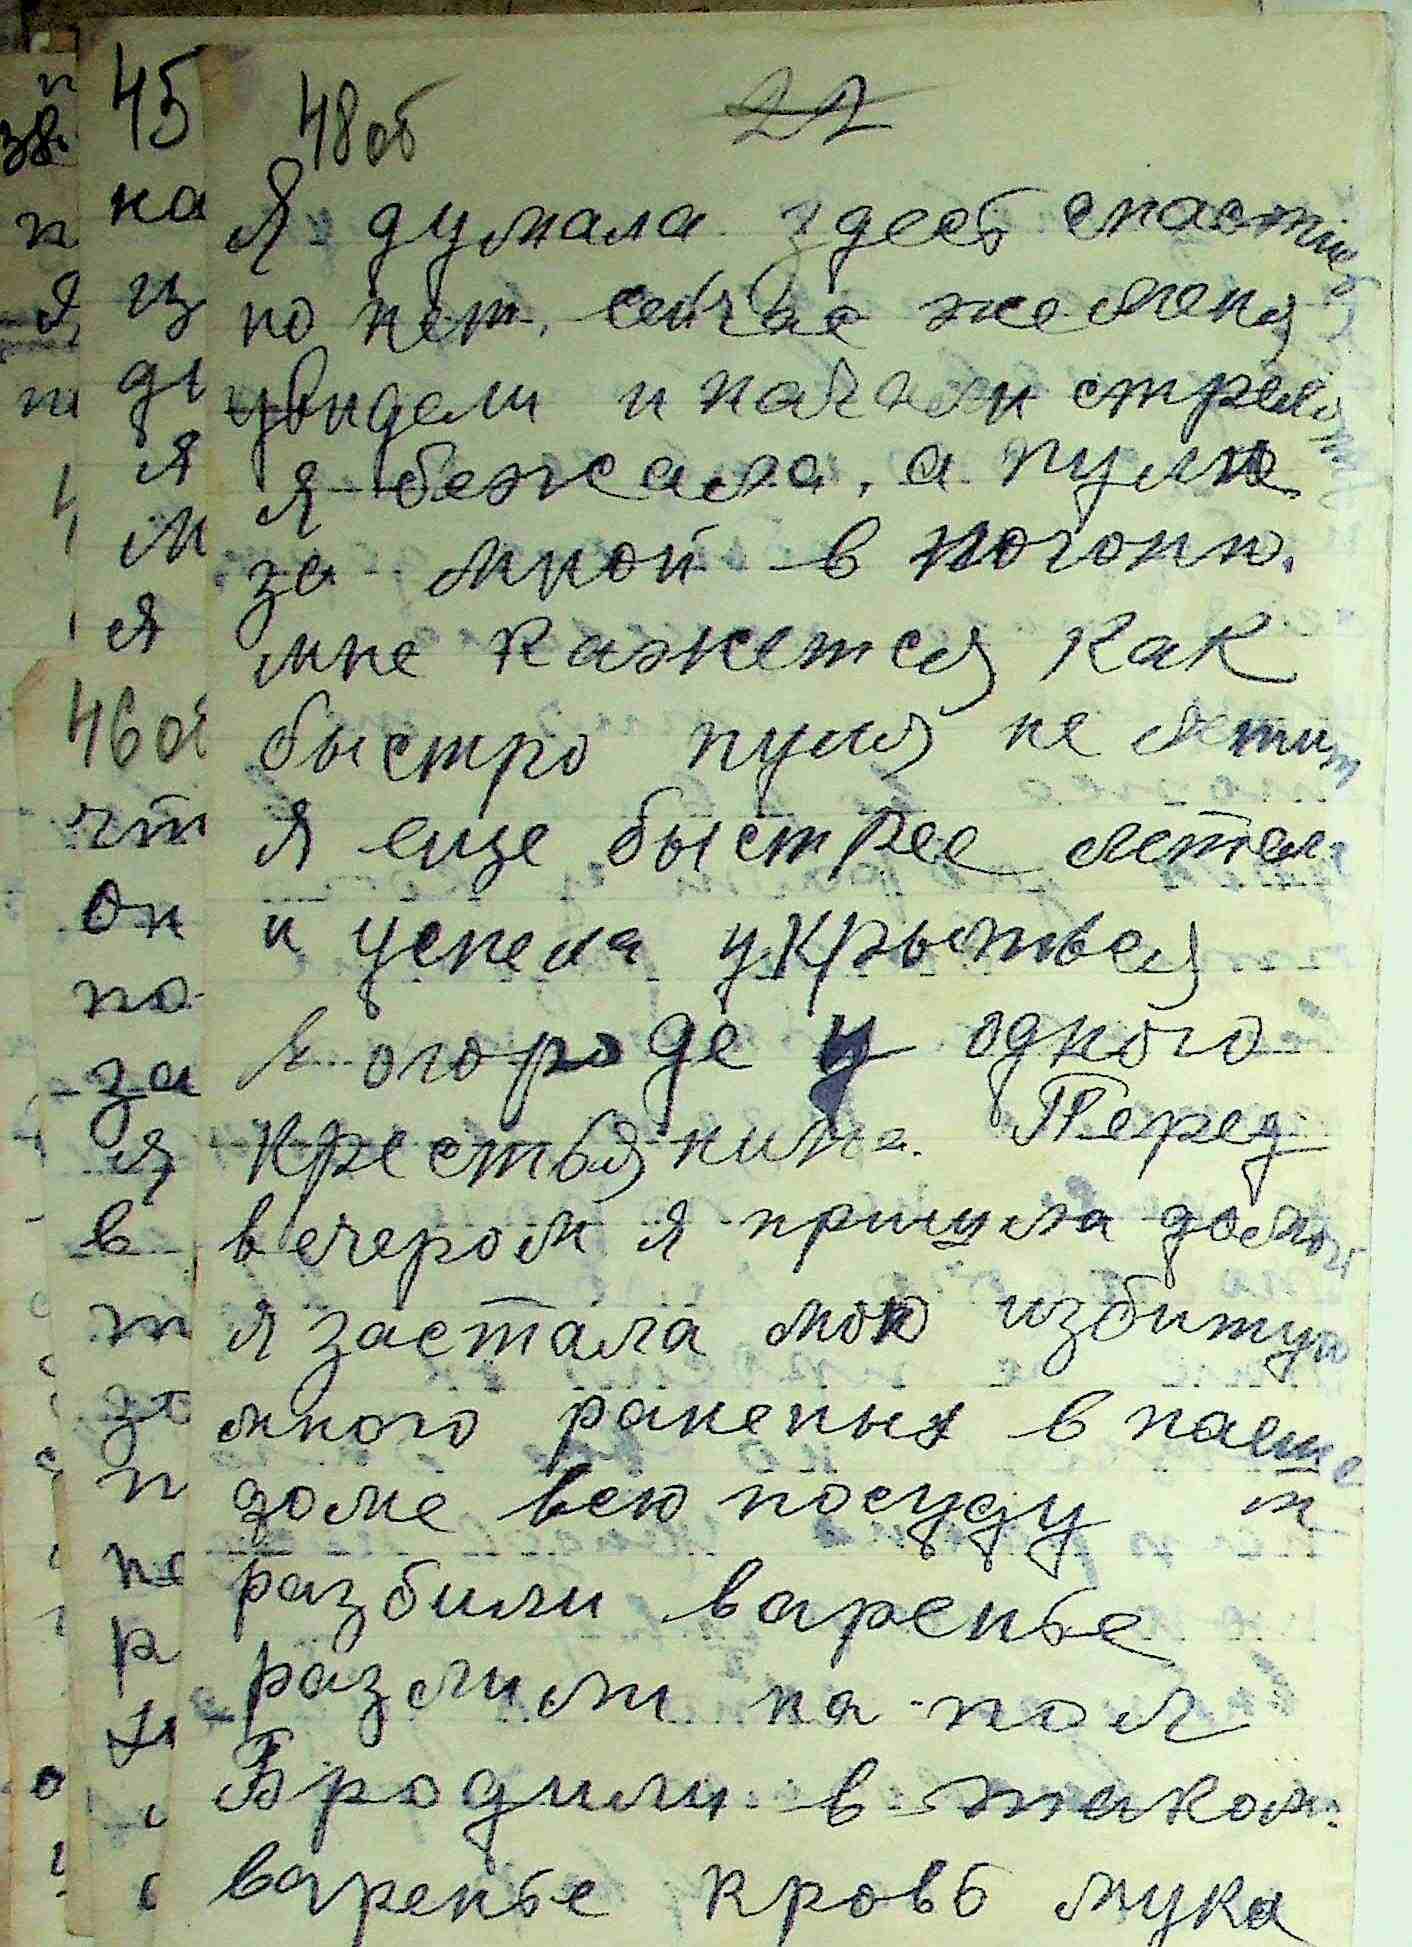 48 об
22
Я думала здесь спастись
но нет. сейчас же меня
увидели и начали стрелять
я бежала, а пули
за мной в погони.
мне кажется как
быстро пуля не летит
я еще быстрее летела
и успела укрыться
в огороде у одного
крестьянина. Перед
вечером я пришла домой
я застала мою избитую
много раненых в нашем
доме всю посуду
разбили варенье
разлили на пол
Бродили в таком
варенье кровь мука
45
на
из
ды
я
м
я
46 об
чт
он
по
за
я
в